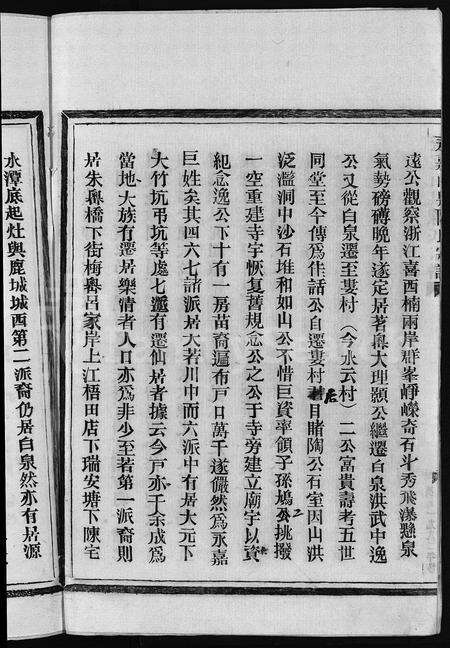 遠公觀察浙江喜西楠兩岸群峯崢嶸奇石斗秀飛瀑懸泉
氣勢磅礡晚年遂定居者奧大理顥公繼遷白泉洪武中逸
公又從白泉遷至婁村（今水云村）二公富貴壽考五世
同堂至今傳為佳話公自遷婁村后目睹陶公石室因山洪
泛濫洞中沙石堆和如山公不惜巨資率領子孫鳩工挑撥
一空重建寺宇恢复舊規念公之公于寺旁建立廟宇以資
紀念逸公下十有一房苗裔遍布戸口萬千遂儼然為永嘉
巨姓矣其四六七諸派居大若川中而六派中有居大元下
大竹坑弔坑等處七派有遷仙居者據云今戸亦千余成為
當地大族有遷居樂清者人口亦為非少至若第一派裔則
居朱輿橋下街梅輿呂家岸上江梧田店下瑞安塘下陳宅
水潭底起灶與鹿城城西第二派裔仍居白泉然亦有居源